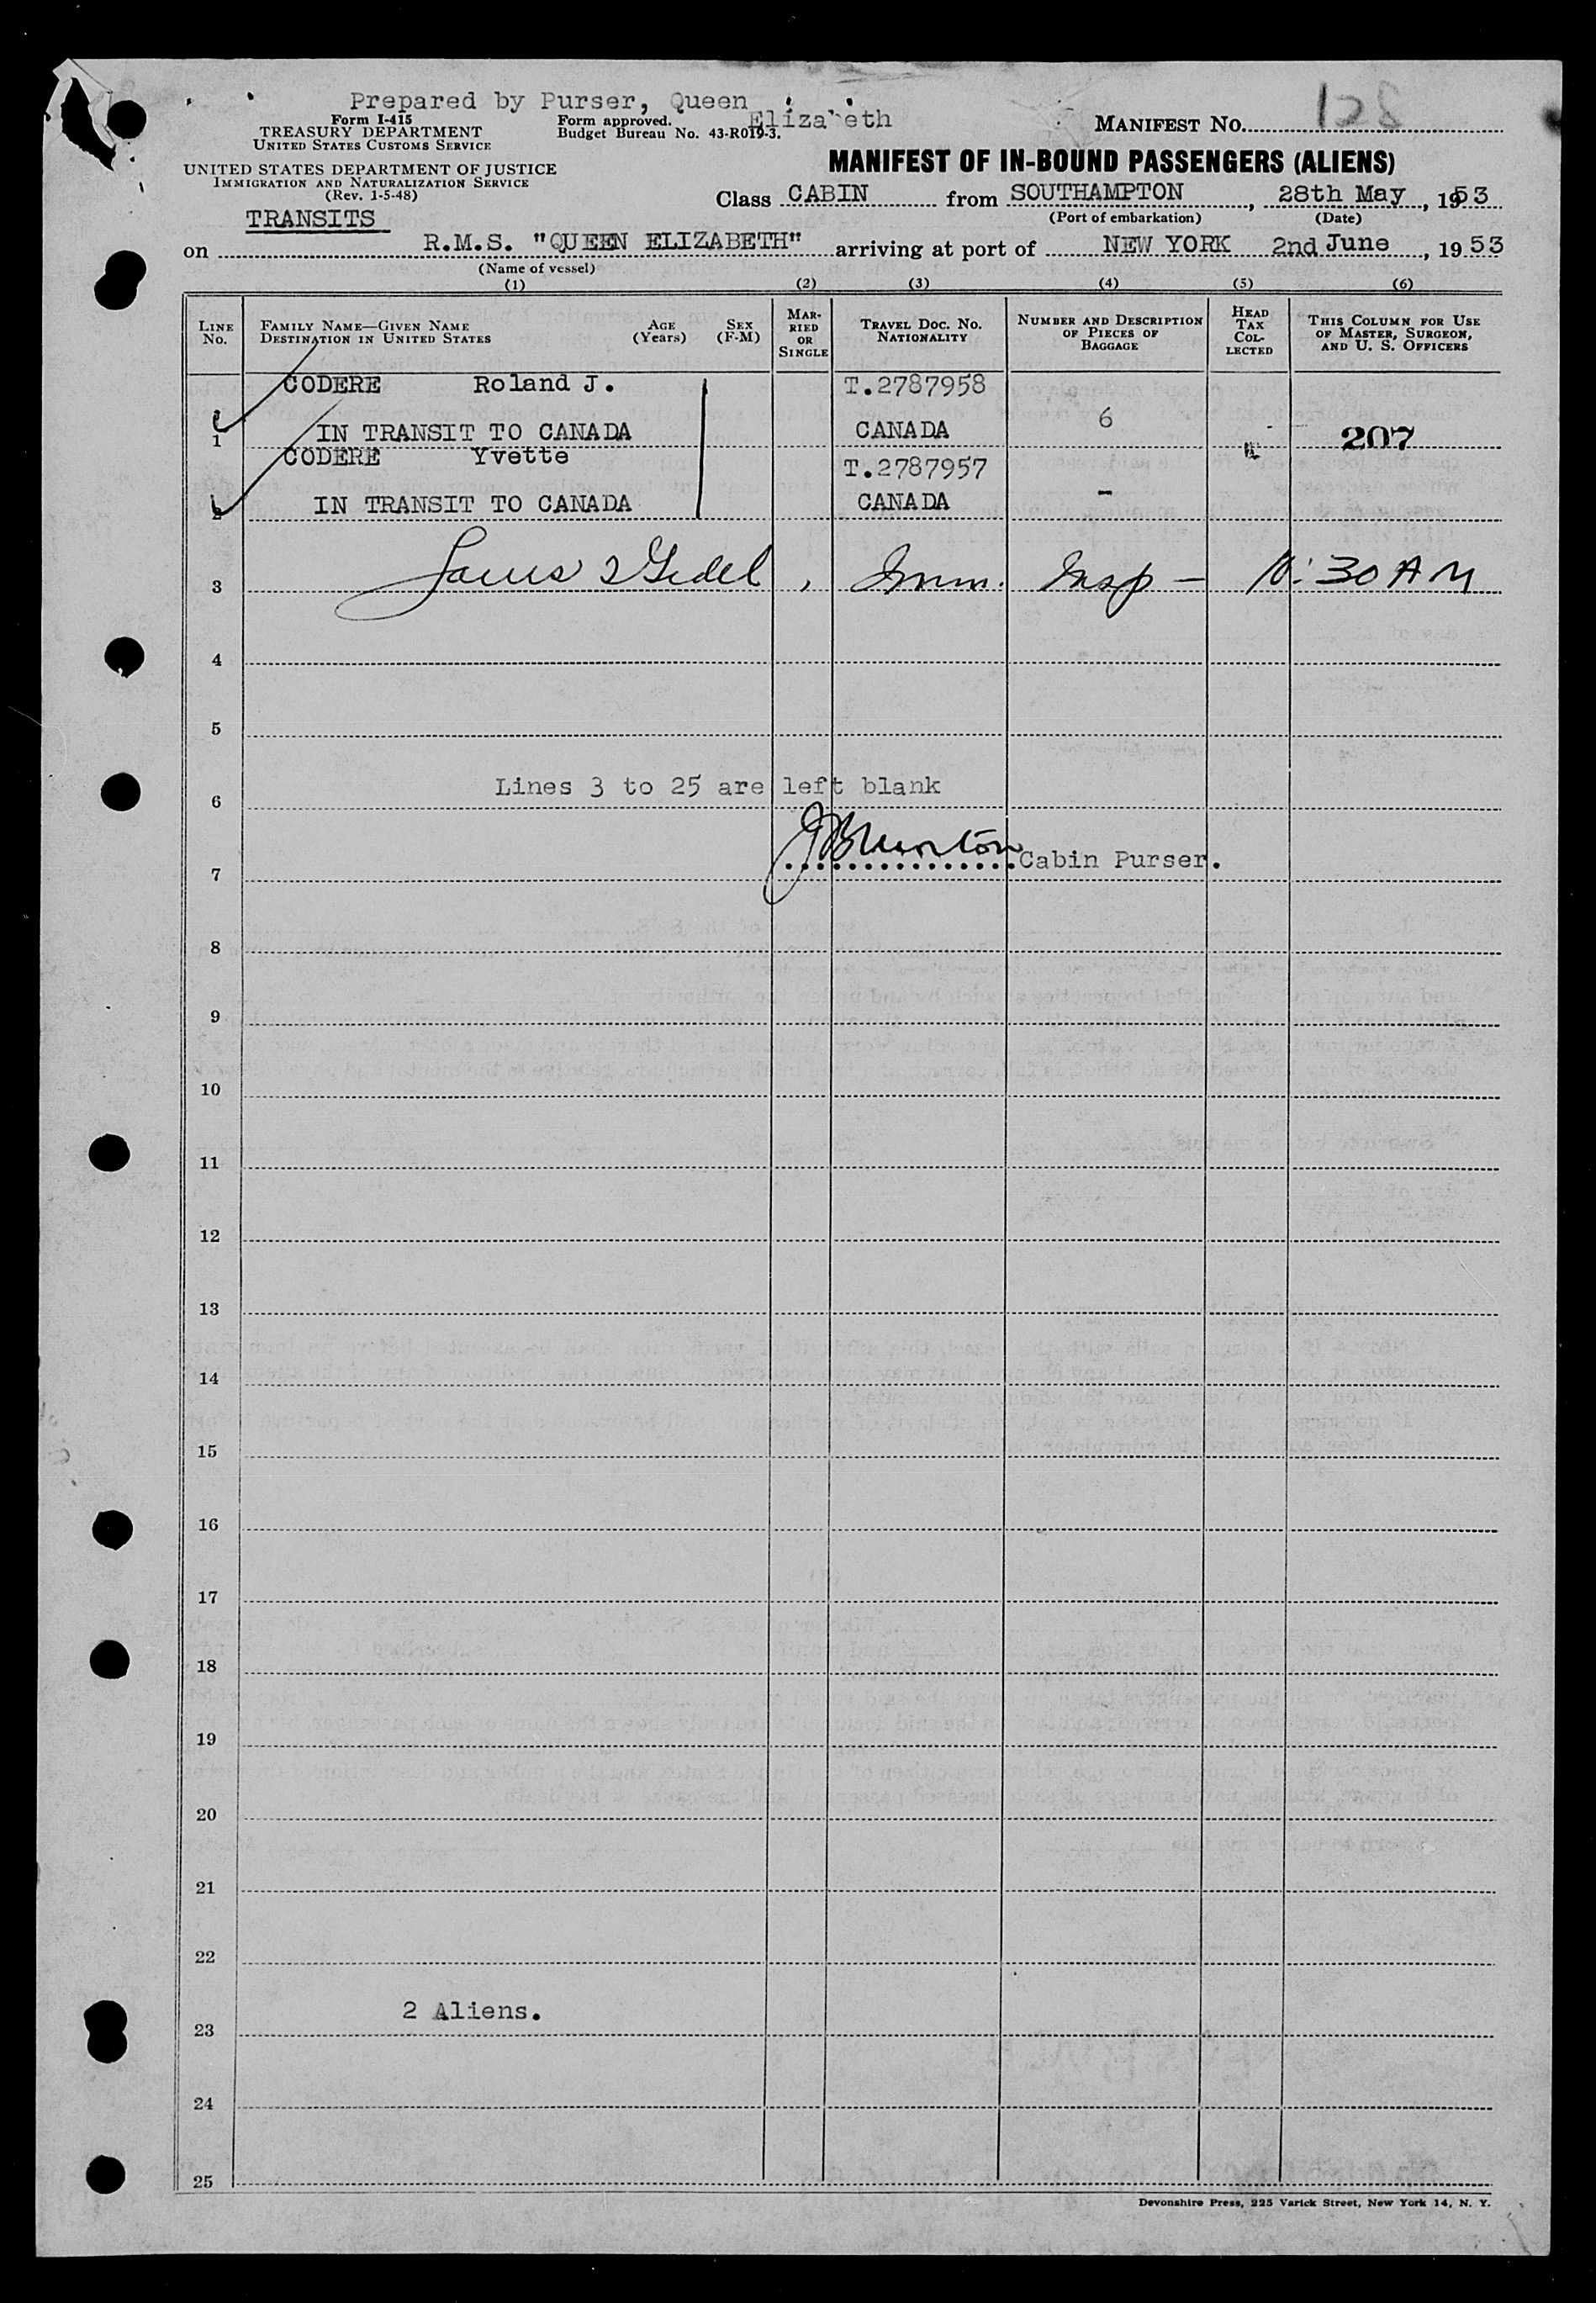 Prepared by Purser, Queen Elizabeth
Form I-415
TREASURY DEPARTMENT
UNITED STATES CUSTOMS SERVICE
Form approved.
Budget Bureau No. 43-R019-3.
MANIFEST NO. 128
UNITED STATES DEPARTMENT OF JUSTICE
IMMIGRATION AND NATURALIZATION SERVICE
(Rev. 1-5-48)
MANIFEST OF IN-BOUND PASSENGERS (ALIENS)
Class CABIN from SOUTHAMPTON, 28th May, 1953
(Port of embarkation) (Date)
TRANSITS
on R.M.S. "QUEEN ELIZABETH" arriving at port of NEW YORK 2nd June, 1953
(Name of vessel)
(1) (2) (3) (4) (5) (6)
LINE NO.
FAMILY NAME—GIVEN NAME
DESTINATION IN UNITED STATES
AGE (Years)
SEX (F-M)
MARRIED OR SINGLE
TRAVEL DOC. NO.
NATIONALITY
NUMBER AND DESCRIPTION OF PIECES OF BAGGAGE
HEAD TAX COLLECTED
THIS COLUMN FOR USE OF MASTER, SURGEON, AND U. S. OFFICERS
CODERE Roland J. T.2787958
1 IN TRANSIT TO CANADA CANADA 6 207
CODERE Yvette T.2787957
2 IN TRANSIT TO CANADA CANADA -
3 Imm. Insp - 10:30 AM
4
5
Lines 3 to 25 are left blank
6
7 Cabin Purser.
8
9
10
11
12
13
14
15
16
17
18
19
20
21
22
2 Aliens.
23
24
25
Devonshire Press, 225 Varick Street, New York 14, N. Y.